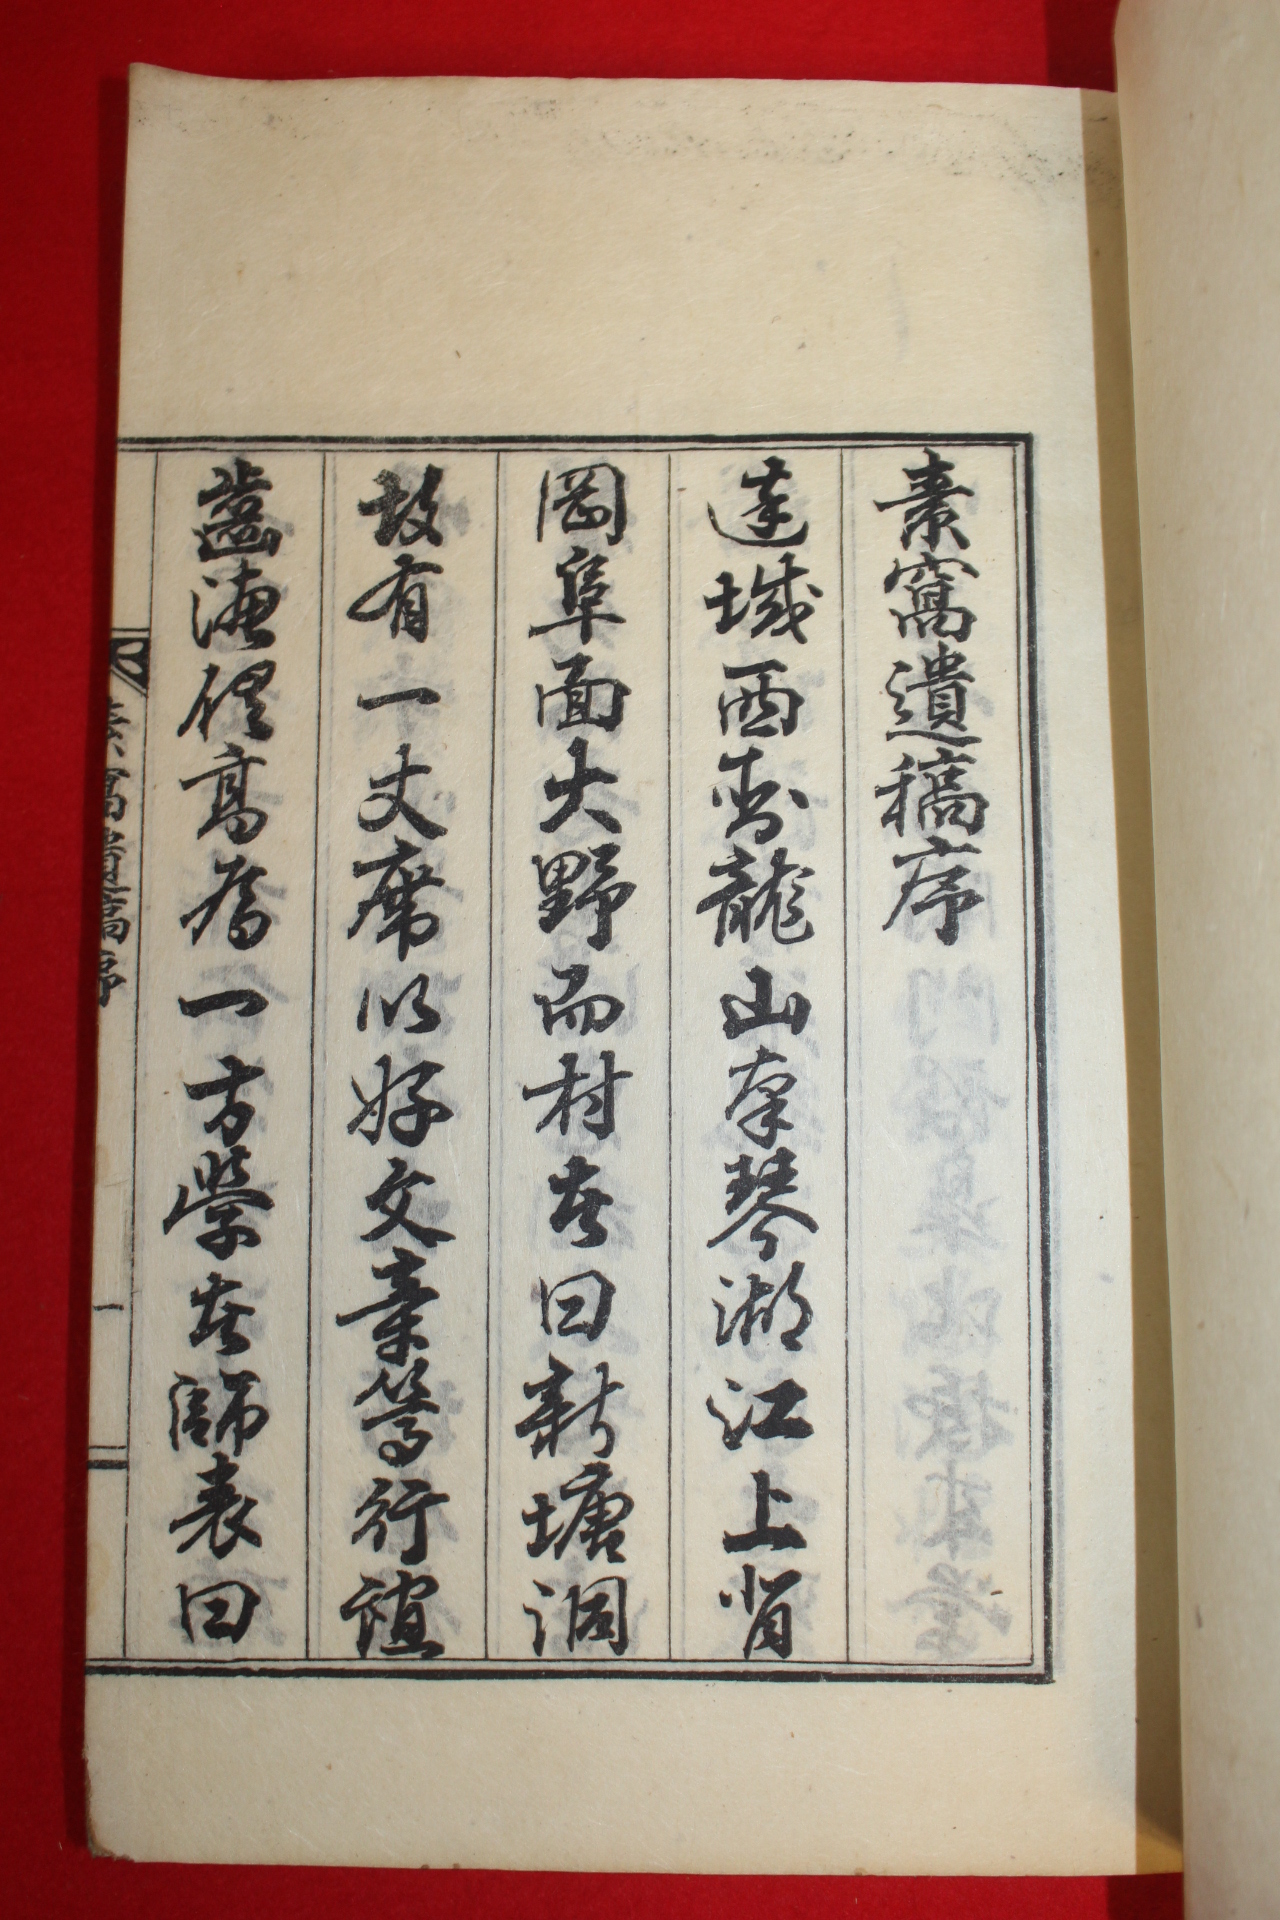 素窩遺稿序
達城西臥龍山南琴湖江上背
岡阜面大野而村者曰新塘洞
故有一丈席以好文章篤行誼
齒德俱高爲一方學者師表曰
素窩遺稿序 一